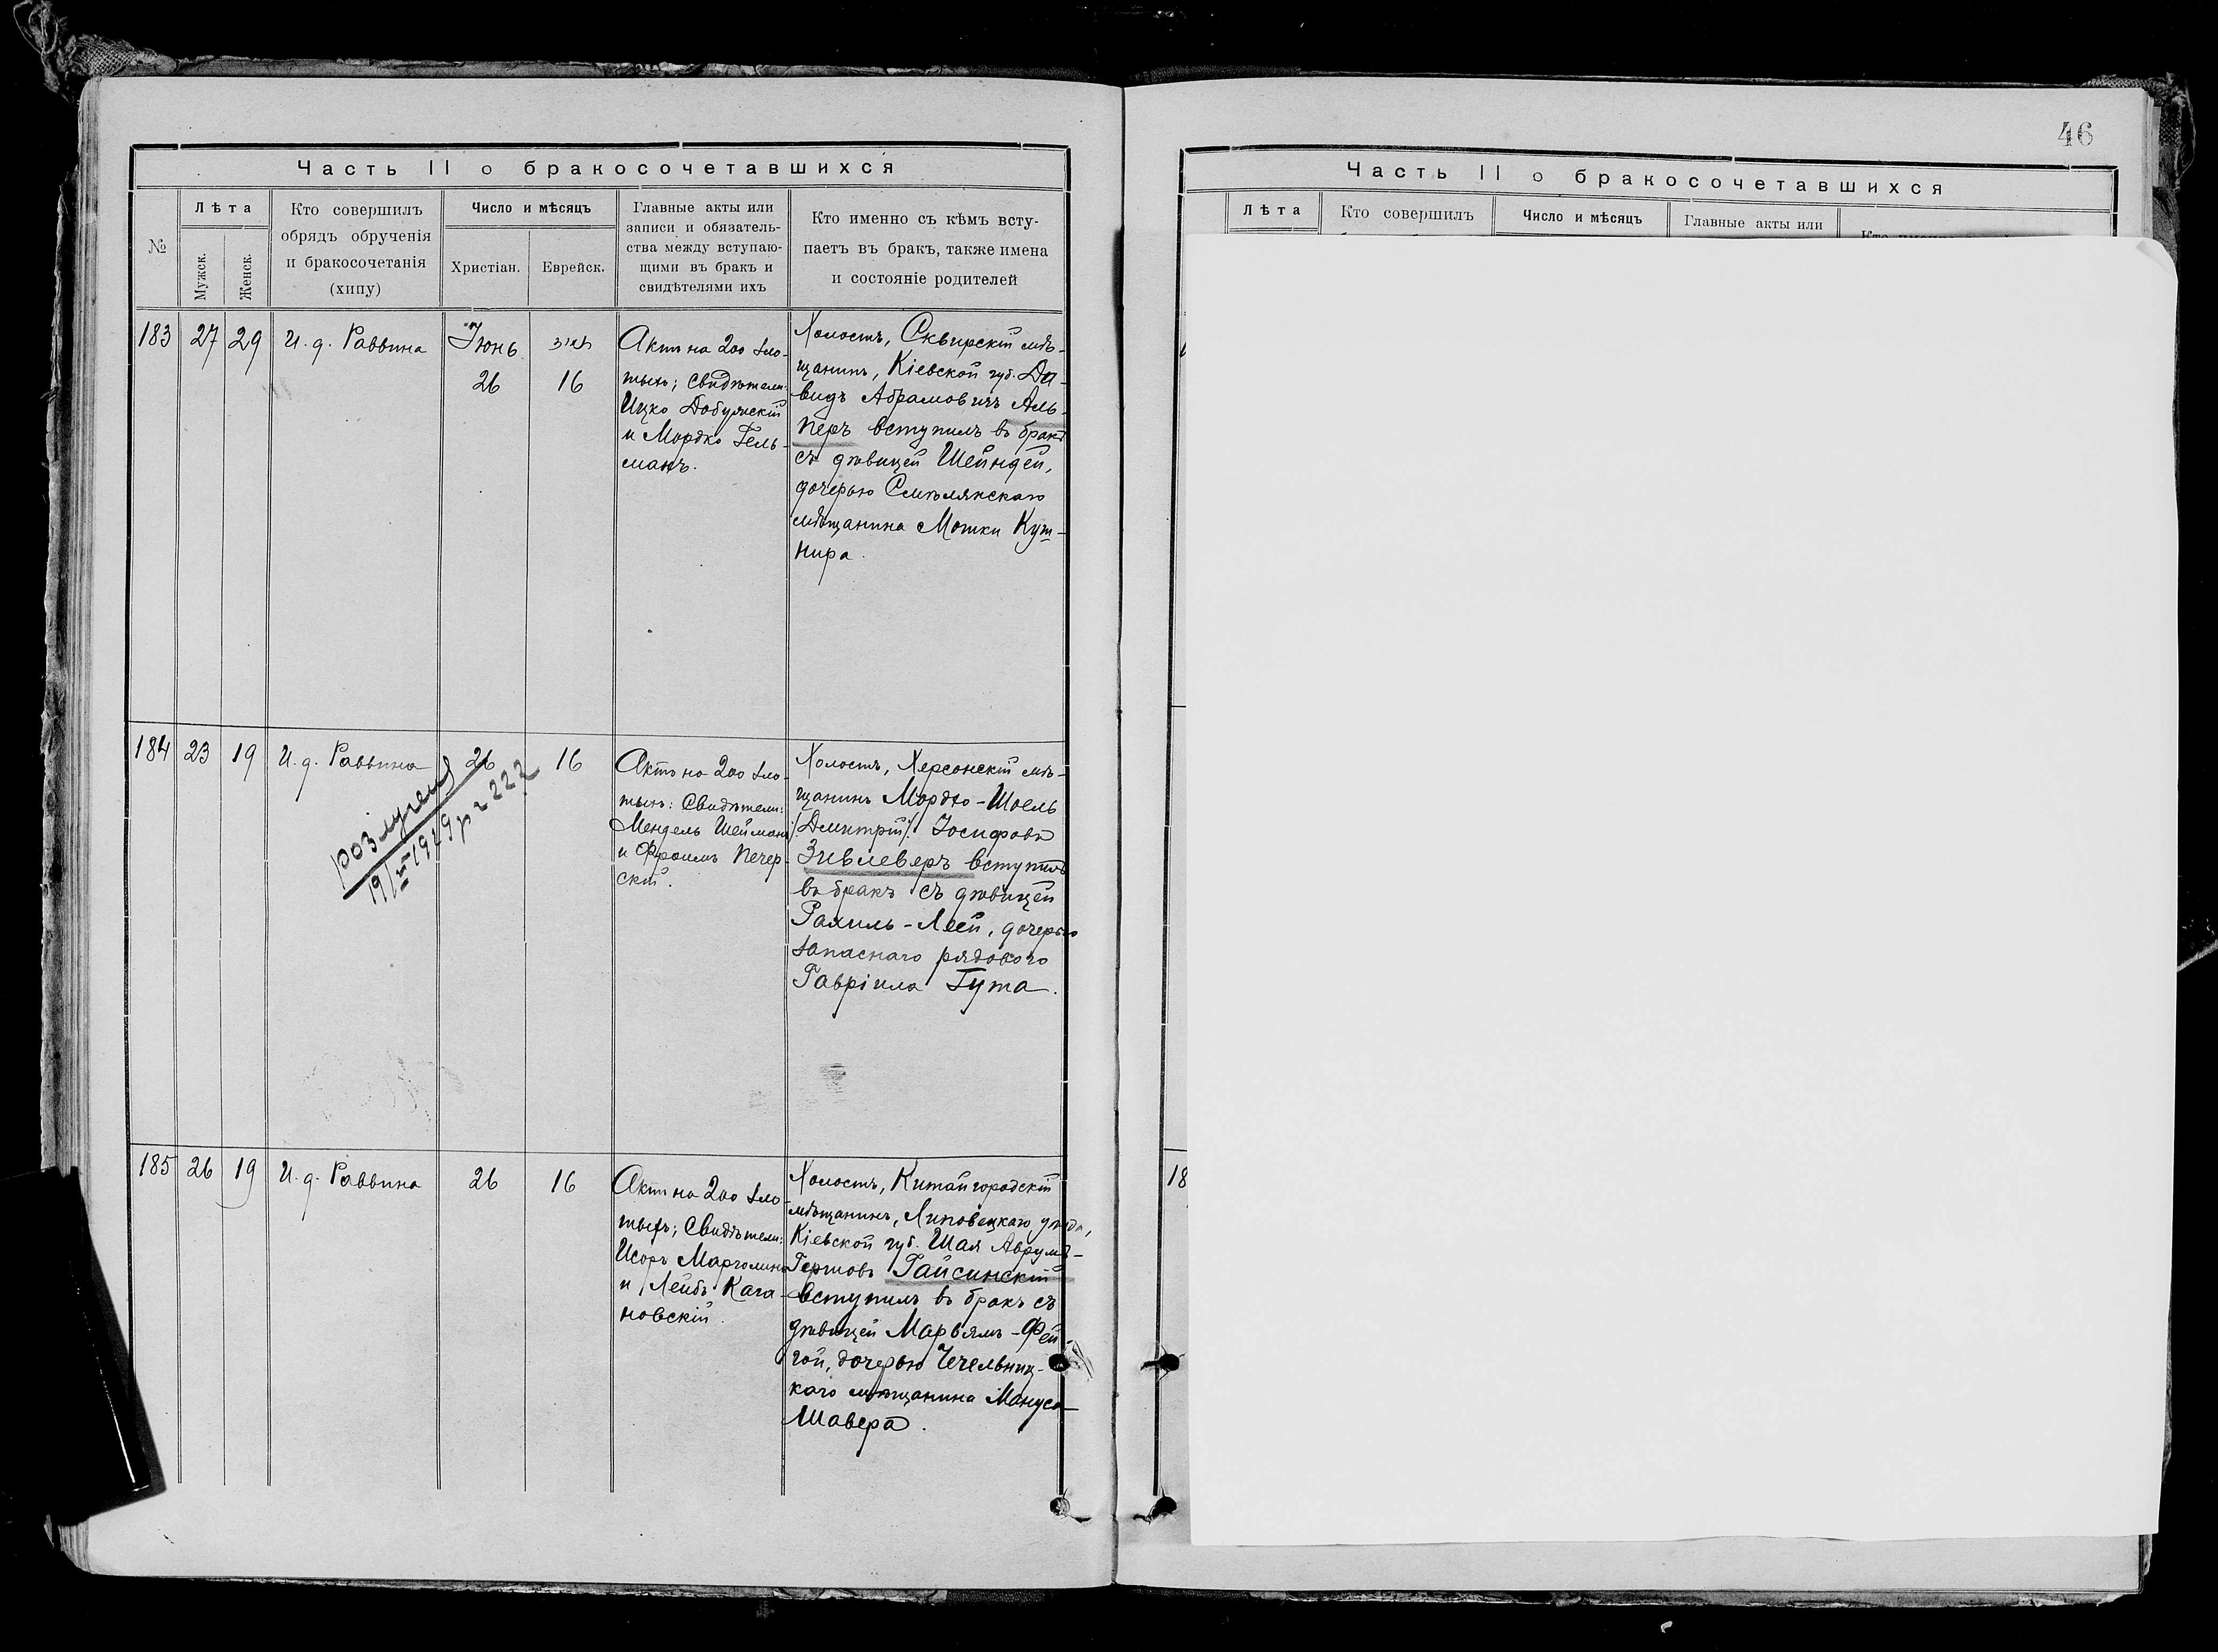 46
Часть II о бракосочетавшихся
№
Лѣта
Мужск.
Женск.
Кто совершилъ
обрядъ обрученія
и бракосочетанія
(хипу)
Число и мѣсяцъ
Христіан.
Еврейск.
Главные акты или
записи и обязатель-
ства между вступаю-
щими въ бракъ и
свидѣтелями ихъ
Кто именно съ кѣмъ всту-
паетъ въ бракъ, также имена
и состояніе родителей
183 27 29 И. д. Раввина
Іюнь
26
16
Актъ на 200 зло-
тыхъ; Свидѣтели:
Ицко
и Мордко Гель-
манъ.
Холостъ, Сквирскій мѣ-
щанинъ, Кіевской губ. Да-
видъ Абрамовичъ Аль-
перъ вступилъ въ бракъ
съ дѣвицей Шейндей,
дочерью Смѣлянскаго
мѣщанина Мотки Куш-
нира.
184 23 19 И. д. Раввина 26 16
розлучен
19 1929 р. 222
Актъ на 200 зло-
тыхъ: Свидѣтели:
Мендель Шейманъ
и Фроимъ Печер-
скій.
Холостъ, Херсонскій мѣ-
щанинъ Мордко-Шоель
/Дмитрій/ Іосифовъ
Зивлеверъ вступилъ
въ бракъ съ дѣвицей
Рахиль-Леей, дочерью
запаснаго рядового
Гавріила Гута.
185 26 19 И. д. Раввина 26 16
Актъ на 200 зло-
тыхъ; Свидѣтели:
Исоръ Марголинъ
и Лейбъ Кага-
новскій.
Холостъ, Китайгородскій
мѣщанинъ, Липовецкаго уѣзда,
Кіевской губ. Шая Аврумъ-
Гершовъ Гайсинскій
вступилъ въ бракъ съ
дѣвицей Марьямъ-Фей-
гой, дочерью Чечельниц-
каго мѣщанина Мануса
Шавера.
Часть II о бракосочетавшихся
Лѣта
Кто совершилъ
Число и мѣсяцъ
Главные акты или
18